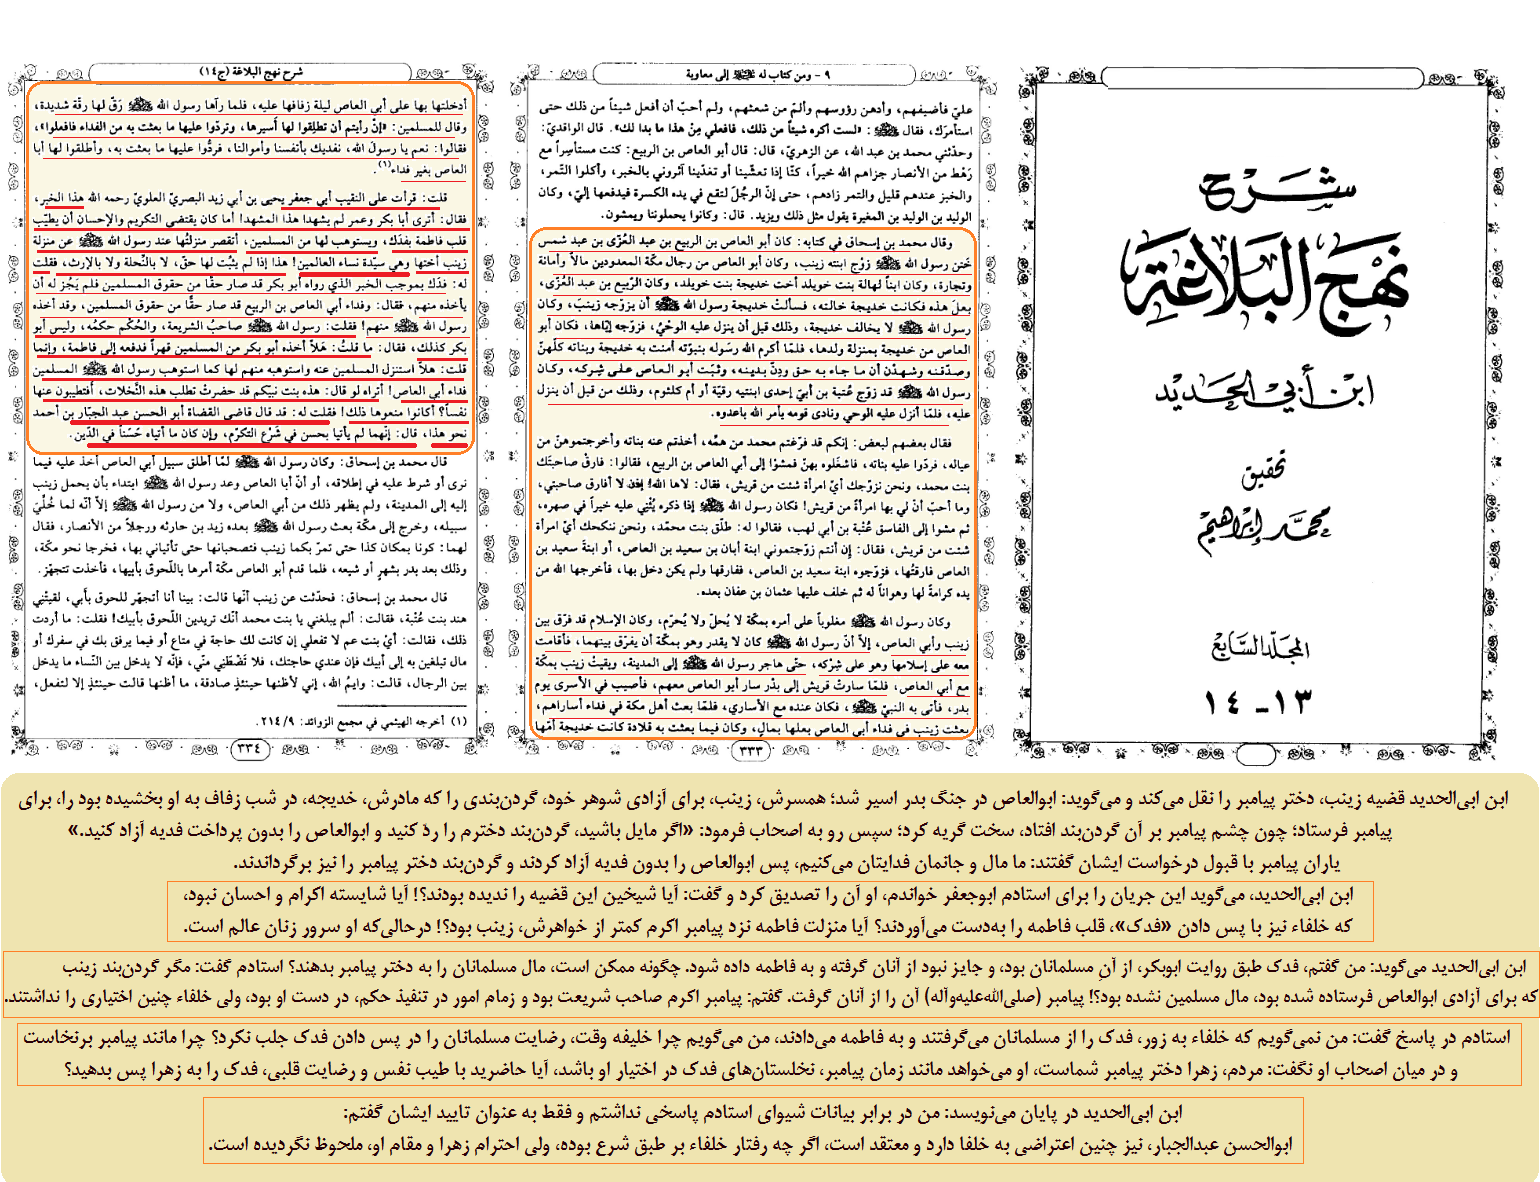 شرح
نهج البلاغة
ابن أبي الحديد
تحقيق
محمد إبراهيم
المجلد السابع
١٣ - ١٤
٩ - ومن كتاب له ﷺ إلى معاوية
عليّ فأضيفهم، وأدهن رؤوسهم وألمّ من شعثهم، ولم أحبّ أن أفعل شيئاً من ذلك حتى
استأمرك، فقال ﷺ: «لست أكره شيئاً من ذلك، فافعلي مِنْ هذا ما بدا لك». قال الواقديّ:
وحدّثني محمد بن عبد الله، عن الزهريّ، قال: قال أبو العاص بن الربيع: كنت مستأسِراً مع
رَهْط من الأنصار جزاهم الله خيراً، كنّا إذا تعشّينا أو تغدّينا آثروني بالخبر، وأكلوا التّمر،
والخبز عندهم قليل والتمر زادهم، حتى إنّ الرجُلَ لتقع في يده الكسرة فيدفعها إليّ، وكان
الوليد بن الوليد بن المغيرة يقول مثل ذلك ويزيد. قال: وكانوا يحملوننا ويمشون.
وقال محمد بن إسحاق في كتابه: كان أبو العاص بن الربيع بن عبد العُزّى بن عبد شمس
ختن رسول الله ﷺ زوْج ابنته زينب، وكان أبو العاص من رجال مكّة المعدودين مالاً وأمانة
وتجارة، وكان ابناً لهالة بنت خويلد أخت خديجة بنت خويلد، وكان الرَّبيع بن عبد العُزّى،
بعلَ هذه فكانت خديجة خالته، فسألتْ خديجة رسول الله ﷺ أن يزوّجه زينبَ، وكان
رسول الله ﷺ لا يخالف خديجة، وذلك قبل أن ينزل عليه الوحْيُ، فزوّجه إيّاها، فكان أبو
العاص من خديجة بمنزلة ولدها، فلمّا أكرم الله رسُوله بنبوّته آمنت به خديجة وبناته كلّهنّ
وصدّقنه وشهدْن أن ما جاء به حق ودِنّ بدينه، وثبَت أبو العاص على شِركه، وكان
رسول الله ﷺ قد زوّج عُتبة بن أبي إحدى ابنتيه رقيّة أو أم كلثوم، وذلك من قبل أن ينزل
عليه، فلمّا أنزل عليه الوحي ونادى قومه بأمر الله باعدوه.
فقال بعضهم لبعض: إنكم قد فرّغتم محمد من همّه، أخذتم عنه بناته وأخرجتموهنّ من
عياله، فردّوا عليه بناته، فاشغَلوه بهنّ فمشوْا إلى أبي العاص بن الربيع، فقالوا: فارقْ صاحبتك
بنت محمد، ونحن نزوّجك أيّ امرأة شئت من قريش، فقال: لاها الله! إذن لا أفارق صاحبتي،
وما أحبّ أنّ لي بها امرأةً من قريش! فكان رسول الله ﷺ إذا ذكره يُثْني عليه خيراً في صهره،
ثم مشوا إلى الفاسق عُتْبة بن أبي لهب، فقالوا له: طلّق بنت محمّد، ونحن ننكحك أيّ امرأة
شئت من قريش، فقال: إن أنتم زوّجتموني ابنة أبان بن سعيد بن العاص، أو ابنةَ سعيد بن
العاص فارقتُها، فزوّجوه ابنة سعيد بن العاص، ففارقها ولم يكن دخل بها، فأخرجها الله من
يده كرامةً لها وهواناً له ثم خلف عليها عثمان بن عفان بعده.
وكان رسول الله ﷺ مغلوباً على أمره بمكّة لا يُحلّ ولا يُحرّم، وكان الإسلام قد فرّق بين
زينب وأبي العاص، إلاّ أنّ رسول الله ﷺ كان لا يقدر وهو بمكّة أن يفرّق بينهما، فأقامت
معه على إسلامها وهو على شِرْكه، حتّى هاجر رسول الله ﷺ إلى المدينة، وبقيتْ زينب بمكّة
مع أبي العاص، فلمّا سارتْ قريش إلى بدْر سار أبو العاص معهم، فأصيب في الأسرى يوم
بدر، فأتى به النبيّ ﷺ، فكان عنده مع الأسارى، فلمّا بعث أهل مكة في فداء أساراهم،
بعثت زينب في فداء أبي العاص بعلها بمالٍ، وكان فيما بعثت به قلادة كانت خديجة أمّها
٣٣٣
شرح نهج البلاغة (ج١٤)
أدخلتها بها على أبي العاص ليلة زفافها عليه، فلما رآها رسول الله ﷺ رَقّ لها رقّة شديدة،
وقال للمسلمين: «إنْ رأيتم أن تطلِقوا لها أسيرها، وتردّوا عليها ما بعثت به من الفداء فافعلوا»،
فقالوا: نعم يا رسولَ الله، نفديك بأنفسنا وأموالنا، فردُّوا عليها ما بعثت به، وأطلقوا لها أبا
العاص بغير فداء(١).
قلت: قرأت على النقيب أبي جعفر يحيى بن أبي زيد البصريّ العلويّ رحمه الله هذا الخبر،
فقال: أترى أبا بكر وعمر لم يشهدا هذا المشهد! أما كان يقتضى التكريم والإحسان أن يطيّب
قلب فاطمة بفدَك، ويستوهب لها من المسلمين، أتقصر منزلتُها عند رسول الله ﷺ عن منزلة
زينب أختها وهي سيّدة نساء العالمين! هذا إذا لم يثبُت لها حقّ، لا بالنّحلة ولا بالإرث، فقلت
له: فدَك بموجب الخبر الذي رواه أبو بكر قد صار حقًّا من حقوق المسلمين فلم يَجُزْ له أن
يأخذه منهم، فقال: وفداء أبي العاص بن الربيع قد صار حقًّا من حقوق المسلمين، وقد أخذه
رسول الله ﷺ منهم! فقلت: رسول الله ﷺ صاحبُ الشريعة، والحُكْم حكمُه، وليس أبو
بكر كذلك، فقال: ما قلتُ: هَلاّ أخذه أبو بكر من المسلمين قهراً فدفعه إلى فاطمة، وإنما
قلت: هلاّ استنزل المسلمين عنه واستوهبه منهم لها كما استوهب رسول الله ﷺ المسلمين
فداء أبي العاص! أتراه لو قال: هذه بنت نبيكم قد حضرتْ تطلب هذه النَّخلات، أفتطيبون عنها
نفساً؟ أكانوا منعوها ذلك! فقلت له: قد قال قاضي القضاة أبو الحسن عبد الجبّار بن أحمد
نحو هذا، قال: إنّهما لم يأتيا بحسن في شَرْع التكرّم، وإن كان ما أتياه حُسْناً في الدّين.
قال محمد بن إسحاق: وكان رسول الله ﷺ لمّا أطلق سبيل أبي العاص أخذ عليه فيما
نرى أو شرط عليه في إطلاقه، أو أنّ أبا العاص وعد رسول الله ﷺ ابتداء بأن يحمل زينب
إليه إلى المدينة، ولم يظهر ذلك من أبي العاص، ولا من رسول الله ﷺ إلاّ أنّه لما خُلِّيَ
سبيله، وخرج إلى مكّة بعث رسول الله ﷺ بعده زيد بن حارثه ورجلاً من الأنصار، فقال
لهما: كونا بمكان كذا حتى تمرّ بكما زينب فتصحبانها حتى تأتياني بها، فخرجا نحو مكّة،
وذلك بعد بدر بشهرٍ أو شيعه، فلما قدم أبو العاص مكّة أمرها باللّحوق بأبيها، فأخذت تتجهّز.
قال محمد بن إسحاق: فحدّثت عن زينب أنّها قالت: بينا أنا أتجهّز للحوق بأبي، لقيتْني
هند بنت عُتْبة، فقالت: ألم يبلغني يا بنت محمد أنّك تريدين اللّحوق بأبيك! فقلت: ما أردت
ذلك، فقالت: أيْ بنت عم لا تفعلي إن كانت لك حاجة في متاع أو فيما يرفق بك في سفرك أو
مال تبلغين به إلى أبيك فإن عندي حاجتك، فلا تَضْطَنِي منّي، فإنّه لا يدخل بين النّساء ما يدخل
بين الرجال، قالت: وايمُ الله، إني لأظنها حينئذٍ صادقة، ما أظنها قالت حينئذٍ إلا لتفعل،
(١) أخرجه الهيثمي في مجمع الزوائد: ٢١٤/٩.
٣٣٤
ابن ابی‌الحدید قضیه زینب، دختر پیامبر را نقل می‌کند و می‌گوید: ابوالعاص در جنگ بدر اسیر شد؛ همسرش، زینب، برای آزادی شوهر خود، گردن‌بندی را که مادرش، خدیجه، در شب زفاف به او بخشیده بود را، برای
پیامبر فرستاد؛ چون چشم پیامبر بر آن گردن‌بند افتاد، سخت گریه کرد؛ سپس رو به اصحاب فرمود: «اگر مایل باشید، گردن‌بند دخترم را ردّ کنید و ابوالعاص را بدون پرداخت فدیه آزاد کنید.»
یاران پیامبر با قبول درخواست ایشان گفتند: ما مال و جانمان فدایتان می‌کنیم، پس ابوالعاص را بدون فدیه آزاد کردند و گردن‌بند دختر پیامبر را نیز برگرداندند.
ابن ابی‌الحدید، می‌گوید این جریان را برای استادم ابوجعفر خواندم، او آن را تصدیق کرد و گفت: آیا شیخین این قضیه را ندیده بودند؟! آیا شایسته اکرام و احسان نبود،
که خلفاء نیز با پس دادن «فدک»، قلب فاطمه را به‌دست می‌آوردند؟ آیا منزلت فاطمه نزد پیامبر اکرم کمتر از خواهرش، زینب بود؟! درحالی‌که او سرور زنان عالم است.
ابن ابی‌الحدید می‌گوید: من گفتم، فدک طبق روایت ابوبکر، از آنِ مسلمانان بود، و جایز نبود از آنان گرفته و به فاطمه داده شود. چگونه ممکن است، مال مسلمانان را به دختر پیامبر بدهند؟ استادم گفت: مگر گردن‌بند زینب
که برای آزادی ابوالعاص فرستاده شده بود، مال مسلمین نشده بود؟! پیامبر (صلی‌الله‌علیه‌وآله) آن را از آنان گرفت. گفتم: پیامبر اکرم صاحب شریعت بود و زمام امور در تنفیذ حکم، در دست او بود، ولی خلفاء چنین اختیاری را نداشتند.
استادم در پاسخ گفت: من نمی‌گویم که خلفاء به زور، فدک را از مسلمانان می‌گرفتند و به فاطمه می‌دادند، من می‌گویم چرا خلیفه وقت، رضایت مسلمانان را در پس دادن فدک جلب نکرد؟ چرا مانند پیامبر برنخاست
و در میان اصحاب او نگفت: مردم، زهرا دختر پیامبر شماست، او می‌خواهد مانند زمان پیامبر، نخلستان‌های فدک در اختیار او باشد، آیا حاضرید با طیب نفس و رضایت قلبی، فدک را به زهرا پس بدهید؟
ابن ابی‌الحدید در پایان می‌نویسد: من در برابر بیانات شیوای استادم پاسخی نداشتم و فقط به عنوان تایید ایشان گفتم:
ابوالحسن عبدالجبار، نیز چنین اعتراضی به خلفا دارد و معتقد است، اگر چه رفتار خلفاء بر طبق شرع بوده، ولی احترام زهرا و مقام او، ملحوظ نگردیده است.